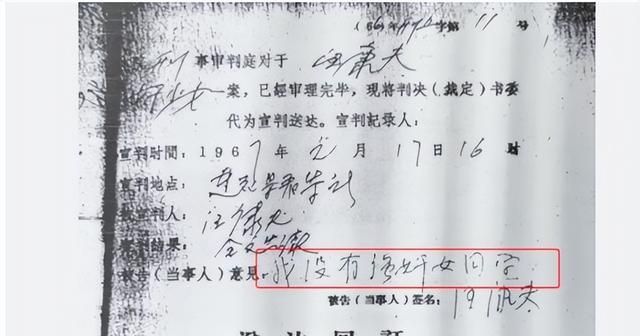 (66) 字第 11 号
刑事审判庭对于 汪康夫
案,已經审理完毕,现将判决(裁定)书委
代为宣判送达。宣判紀录人:
宣判时間:1967年元月17日16时
宣判地点:莲花县看守所
被宣判人:汪康夫
宣判結果:
被告(当事人)意見:我没有强奸女同学
被告(当事人)签名:汪康夫